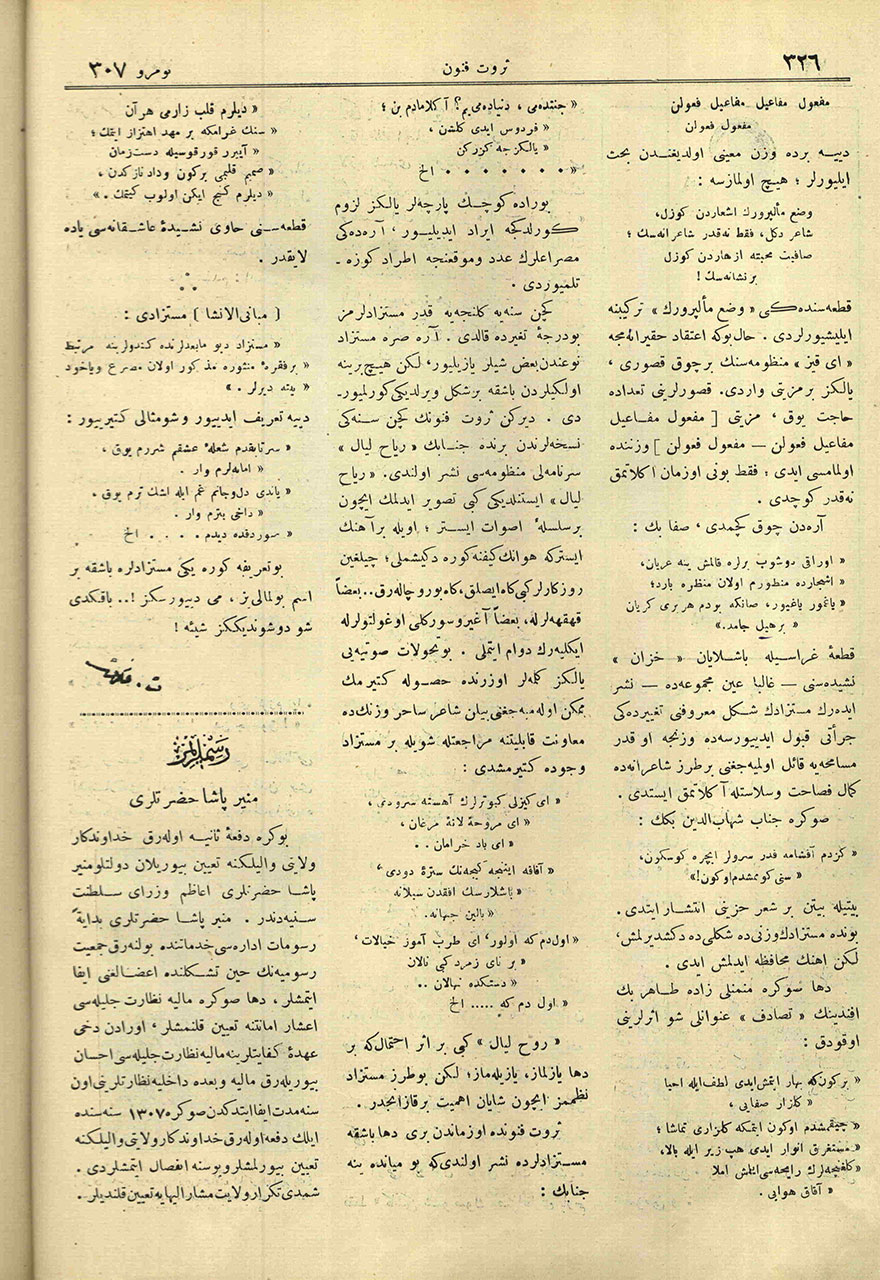 ٣٢٦
ثروت فنون
نومرو ٣٠٧
مفعول مفاعيل مفاعيل فعولن
مفعول فعولن
دييه برده وزن معينى اولديغندن بحث
ايليورلر ؛ هيچ اولمازسه :
وضع مألپرورك اشعاردن كوزل،
شاعر دكل، فقط نه‌قدر شاعرانه‌سك ؛
صافيت محبته ازهاردن كوزل
بر نشانه‌سك !
قطعه‌سنده‌كى « وضع مألپرورك » تركيبنه
ايليشيورلردى . حال‌بوكه اعتقاد حقيرانه‌مجه
« اى قيز » منظومه‌سنك برچوق قصورى ،
يالكز برمزيتى واردى. قصورلرينى تعداده
حاجت يوق ، مزيتى [ مفعول مفاعيل
مفاعيل فعولن — مفعول فعولن ] وزننده
اولمامسى ايدى ؛ فقط بونى اوزمان اكلاتمق
نه‌قدر كوچدى .
آره‌دن چوق كچمدى ، صفا بك :
« اوراقى دوشوب يرلره قالمش ينه عريان،
« اشجارده منظورم اولان منظره بارد؛
« ياغمور ياغيور، صانكه بودم هر برى كريان
« برهيكل جامد.»
قطعهٔ غراسيله باشلايان « خزان »
نشيده‌سنى — غالبا عين مجموعه‌ده — نشر
ايده‌رك مستزادك شكل معروفنى تغييرده‌كى
جرأتى قبول ايدييورسه‌ده وزنجه او قدر
مسامحه‌يه قائل اولميه‌جغنى برطرز شاعرانه‌ده
كمال فصاحت وسلاستله آكلاتمق ايستدى .
صوكره جناب شهاب‌الدين بكك :
« كزدم آقشامه قدر سرولر ايچره كوسكون،
« سنى كوممشدم اوكون!»
بيتيله بيتن بر شعر حزينى انتشار ايتدى .
بونده مستزادك وزنى‌ده شكلى‌ده دكشديرلمش،
لكن اهنك محافظه ايدلمش ايدى .
دها صوكره منمنلى زاده طاهر بك
افندينك « تصادف » عنوانلى شو اثرلرينى
اوقودق :
« بركون‌كه بهار ايتمش‌ايدى لطف‌ايله احيا
« كلزار صفايى ،
« چيقمشدم اوكون ايتمكه كلزارى تماشا ؛
« مستغرق انوار ايدى هپ زير ايله بالا،
« كلغنچه‌لرك رايحه‌سى ايتمش املا
« آفاق هوايى .
« جنتده‌مى ، دنياده‌مى‌يم؟ آكلامادم بن ؛
« فردوس ايدى كلشن ،
« يالكزجه كزركن
« . . . . . . . الخ
بوراده كوچك پارچه‌لر يالكز لزوم
كورلدكجه ايراد ايديليور ، آره‌ده‌كى
مصراعلرك عدد وموقعنجه اطراد كوزه-
تلميوردى .
كچن سنه‌يه كلنجه‌يه قدر مستزادلرمز
بودرجهٔ تغيرده قالدى . آره صره مستزاد
نوعندن بعض شيلر يازيليور، لكن هيچ برينه
اولكيلردن باشقه برشكل ويرلديكى كورلميور-
دى . ديركن ثروت فنونك كچن سنه‌كى
نسخه‌لرندن برنده جنابك « رياح ليال »
سرنامه‌لى منظومه‌سى نشر اولندى. « رياح
ليال » ايستنلديكى كبى تصوير ايدلمك ايچون
برسلسلهٔ اصوات ايستر ؛ اويله برآهنك
ايستركه هوانك كيفنه‌كوره دكيشملى ؛ چيلغين
روزكارلر كبى كاه ايصلق، كاه بورو چاله‌رق.. بعضاً
قهقهه‌لرله، بعضاً آغير وسوركلى اوغولتولرله
ايكليه‌رك دوام ايتملى . بوتحولات صوتيه‌يى
يالكز كلمه‌لر اوزرنده حصوله كتيرمك
ممكن اوله‌ميه‌جغنى بيلن شاعر ساحر وزنك‌ده
معاونت قابليتنه مراجعتله شويله بر مستزاد
وجوده كتيرمشدى :
« اى كيزلى كبوترلرك آهسته سرودى ،
« اى مروحهٔ لانهٔ مرغان ،
« اى باد خرامان . .
« آفاقه اينجه كيجه‌نك سترهٔ دودى،
« باشلارسك افقدن سيلانه
« بالين جهانه.
« اول‌دم كه اولور، اى طرب آموز خيالات ،
« بر ناى زمردكبى نالان
« دستكده نهالان ..
« اول دم كه ..... الخ
« روح ليال » كبى بر اثر احتمال‌كه بر
دها يازلماز، يازيله‌ماز؛ لكن بوطرز مستزاد
نظممز ايچون شايان اهميت برقازانجدر .
ثروت فنونده اوزماندن برى دها باشقه
مستزادلرده نشر اولندى‌كه بو ميانده ينه
جنابك :
« ديلرم قلب زارمى هر آن
« سنك غرامكه بر مهد اهتزاز ايتمك ؛
« آييرر قورقوسيله دست‌زمان
« صميم قلبمى بركون وداد نازكدن ،
« ديلرم كنج ايكن اولوب كيتمك . »
قطعه‌سنى حاوى نشيدهٔ عاشقانه‌سى ياده
لايقدر .
[ مبانى‌الانشا ] مستزادى :
« مستزاد ديو مابعدلرنده كندولرينه مرتبط
« برفقرهٔ منثوره مذكور اولان مصرع وياخود
« بيته ديرلر . »
دييه تعريف ايدييور وشومثالى كتيرييور :
« سرتابقدم شعلهٔ عشقم شررم يوق ،
« امابه‌لرم وار .
« ياندى دل‌وجانم غم ايله اشك ترم يوق ،
« داخى بترم وار .
« سوردفده ديدم . . . . الخ
بوتعريفه كوره يكى مستزادلره باشقه بر
اسم بولمالى‌يز ، مى دييورسكز !.. باقكدى
شو دوشونديككز شيئه !
ت . فكرت
رسملرمز
منير پاشا حضرتلرى
بوكره دفعهٔ ثانيه اوله‌رق خداوندكار
ولايتى واليلكنه تعيين بيوريلان دولتلو منير
پاشا حضرتلرى اعاظم وزراى سلطنت
سنيه‌دندر . منير پاشا حضرتلرى بدايةً
رسومات اداره‌سى خدماتنده بولنه‌رق جمعيت
رسوميه‌نك حين تشكلنده اعضالغنى ايفا
ايتمشلر ، دها صوكره ماليه نظارت جليله‌سى
اعشار امانتنه تعيين قلنمشلر ، اورادن دخى
عهدهٔ كفايتلرينه ماليه نظارت جليله‌سى احسان
بيوريله‌رق ماليه وبعده داخليه نظارتلرينى اون
سنه مدت ايفا ايتدكدن صوكره ١٣٠٧ سنه‌سنده
ايلك دفعه اوله‌رق خداوندكار ولايتى واليلكنه
تعيين بيورلمشلر وبوسنه انفصال ايتمشلردى .
شمدى تكرار ولايت مشاراليهايه تعيين قلنديلر .